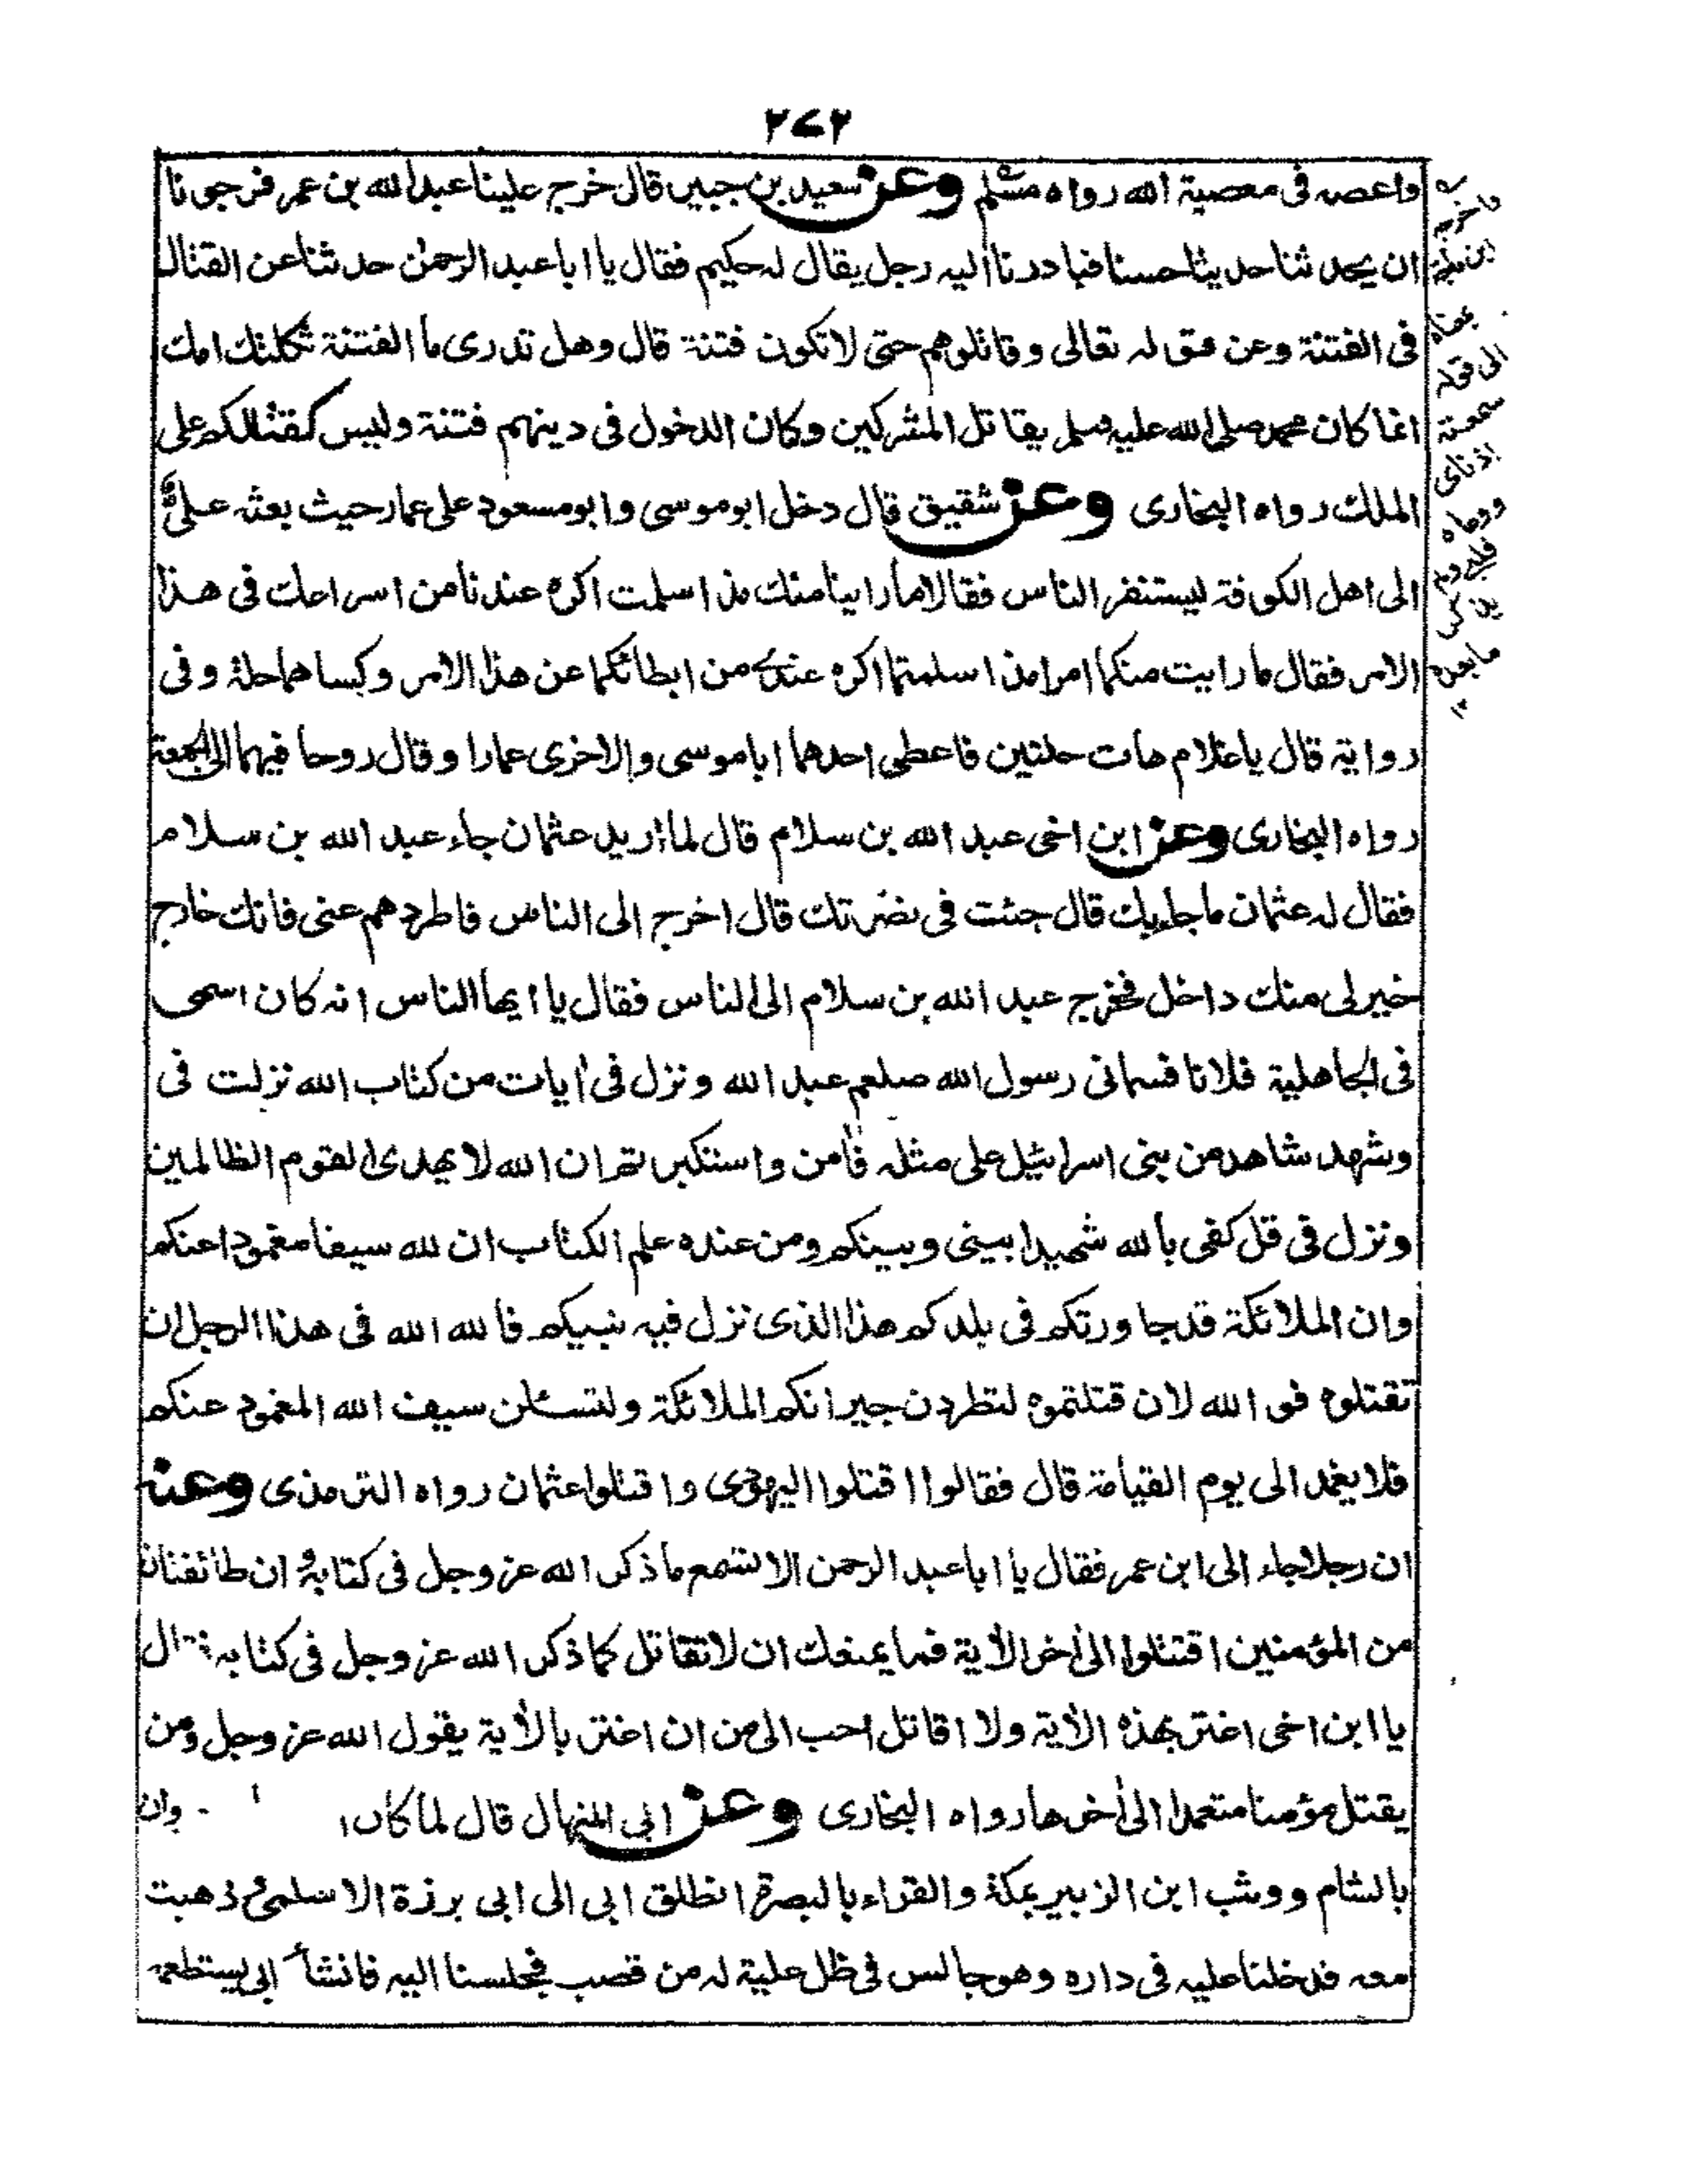 ۲۷۲
واعصه فى معصية الله رواه مسلم وعن سعيد بن جبير قال خرج علينا عبد الله بن عمر فرجونا
ان يحدثنا حديثا حسنا فبادرنا اليه رجل يقال له حكيم فقال يا ابا عبد الرحمن حدثنا عن القتال
فى الفتنة وعن قوله تعالى وقاتلوهم حتى لا تكون فتنة قال وهل تدرى ما الفتنة ثكلتك امك
انما كان محمد صلى الله عليه وسلم يقاتل المشركين وكان الدخول فى دينهم فتنة وليس كقتالكم على
الملك رواه البخارى وعن شقيق قال دخل ابو موسى وابو مسعود على عمار حيث بعثه على
الى اهل الكوفة ليستنفر الناس فقالا ما راينا منك مذ اسلمت اكره عندنا من اسراعك فى هذا
الامر فقال ما رايت منكما امرا مذ اسلمتما اكره عندى من ابطائكما عن هذا الامر وكساهما حلة وفى
رواية قال يا غلام هات حلتين فاعطى احدهما ابا موسى والاخرى عمارا وقال روحا فيهما الى الجمعة
رواه البخارى وعن ابن اخى عبد الله بن سلام قال لما اريد عثمان جاء عبد الله بن سلام
فقال له عثمان ما جاء بك قال جئت فى نصرتك قال اخرج الى الناس فاطردهم عنى فانك خارج
خير لى منك داخل فخرج عبد الله بن سلام الى الناس فقال يا ايها الناس انه كان اسمى
فى الجاهلية فلانا فسمانى رسول الله صلعم عبد الله ونزل فى ايات من كتاب الله نزلت فى
وشهد شاهد من بنى اسرائيل على مثله فامن واستكبرتم ان الله لا يهدى القوم الظالمين
ونزل فى قل كفى بالله شهيدا بينى وبينكم ومن عنده علم الكتاب ان لله سيفا مغمودا عنكم
وان الملائكة قد جاورتكم فى بلدكم هذا الذى نزل فيه نبيكم فالله الله فى هذا الرجل ان
تقتلوه فو الله لان قتلتموه لتطردن جيرانكم الملائكة ولتسئلن سيف الله المغمود عنكم
فلا يغمد الى يوم القيامة قال فقالوا اقتلوا اليهودى واقتلوا عثمان رواه الترمذى وعنه
ان رجلا جاء الى ابن عمر فقال يا ابا عبد الرحمن الا تسمع ما ذكر الله عز وجل فى كتابه وان طائفتان
من المؤمنين اقتتلوا الى اخر الاية فما يمنعك ان لا تقاتل كما ذكر الله عز وجل فى كتابه فقال
يا ابن اخى اغتر بهذه الاية ولا اقاتل احب الى من ان اغتر بالاية يقول الله عز وجل ومن
يقتل مؤمنا متعمدا الى اخرها رواه البخارى وعن ابى المنهال قال لما كان وان
بالشام ووثب ابن الزبير بمكة والقراء بالبصرة انطلق ابى الى ابى برزة الاسلمى ذهبت
معه فدخلنا عليه فى داره وهو جالس فى ظل علية له من قصب فجلسنا اليه فانشأ ابى يستطعمه
الى قوله
سمعته
اذناى
ووعاه
قلبى ولم
يذكر
ما بعده